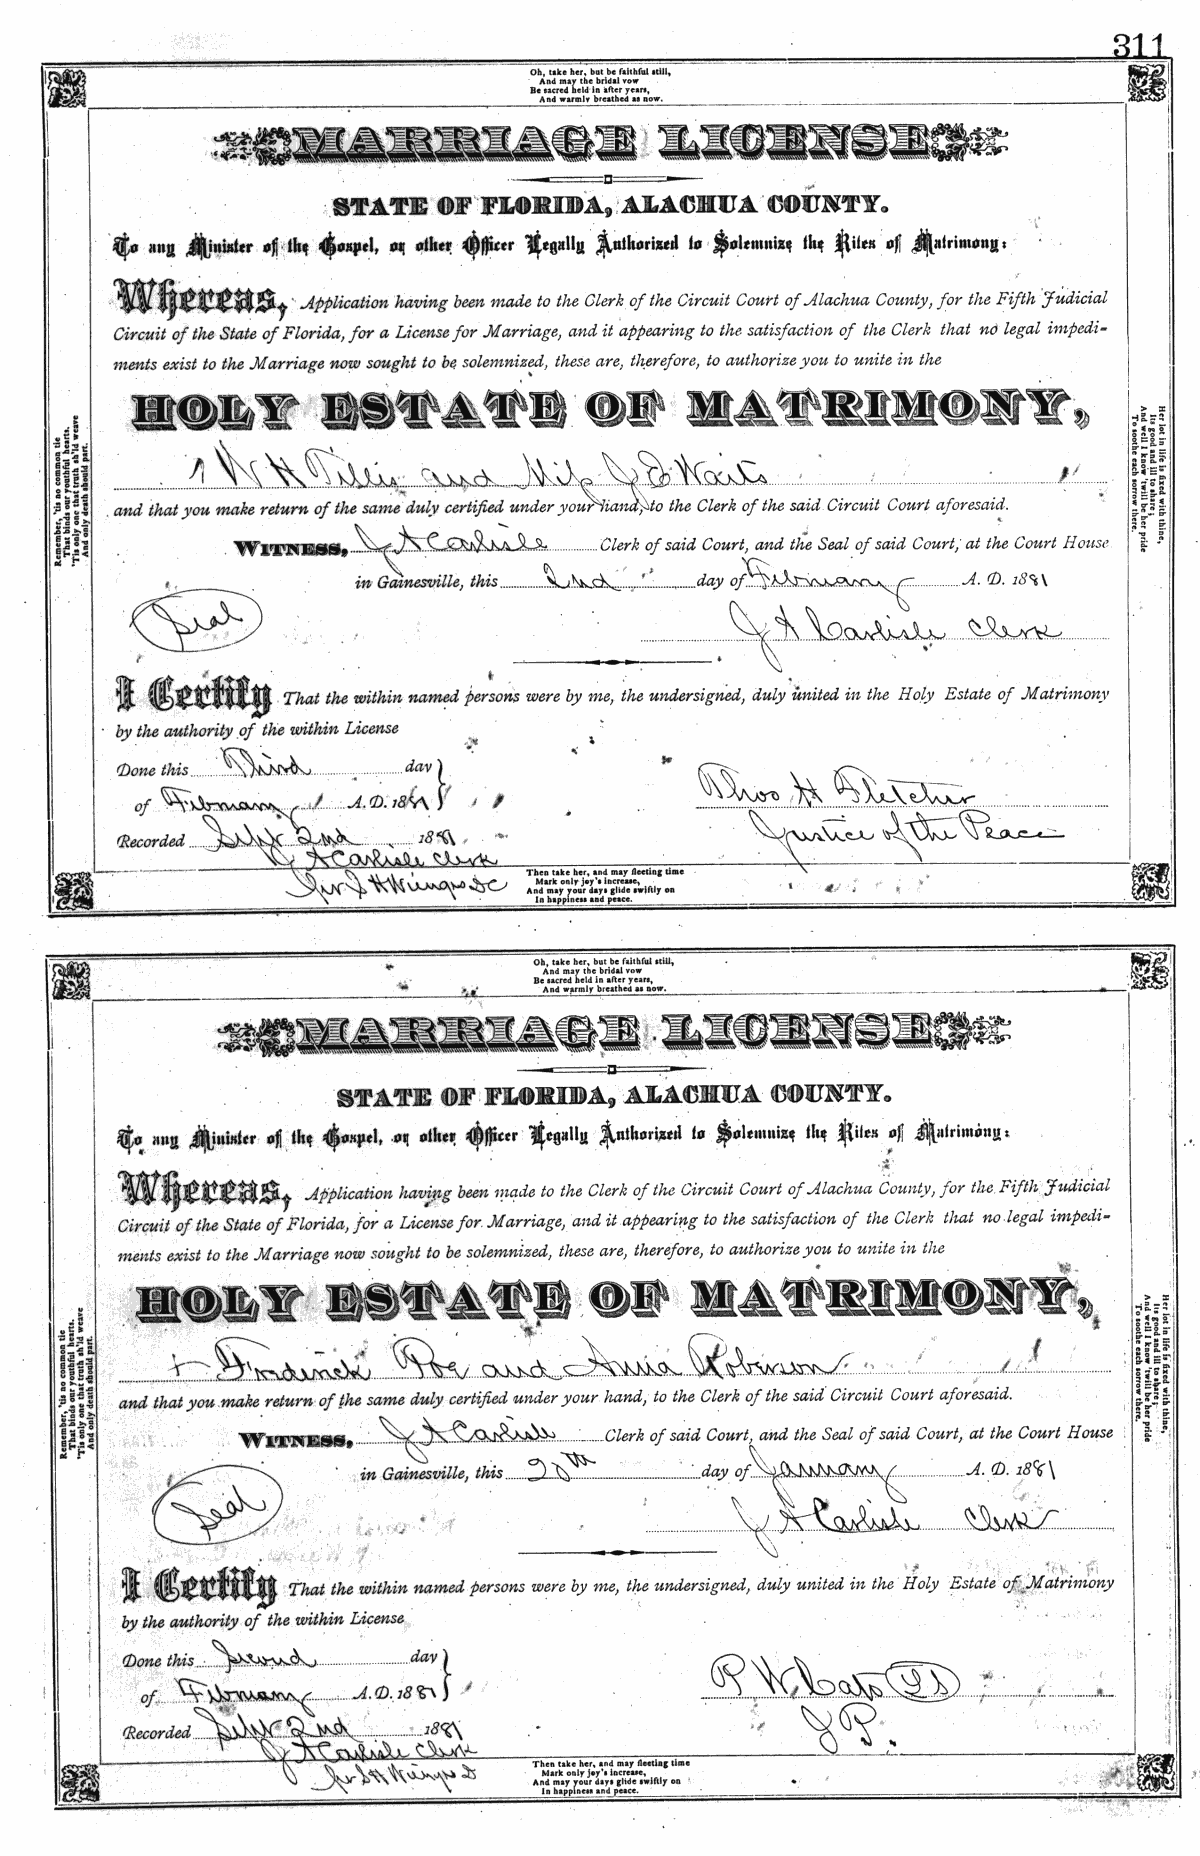 311
Oh, take her, but be faithful still,
And may the bridal vow
Be sacred held in after years,
And warmly breathed as now.
MARRIAGE LICENSE
STATE OF FLORIDA, ALACHUA COUNTY.
To any Minister of the Gospel, or other Officer Legally Authorized to Solemnize the Rites of Matrimony:
Whereas, Application having been made to the Clerk of the Circuit Court of Alachua County, for the Fifth Judicial
Circuit of the State of Florida, for a License for Marriage, and it appearing to the satisfaction of the Clerk that no legal impedi-
ments exist to the Marriage now sought to be solemnized, these are, therefore, to authorize you to unite in the
HOLY ESTATE OF MATRIMONY,
W H Tillis and Miss J E Waits
and that you make return of the same duly certified under your hand, to the Clerk of the said Circuit Court aforesaid.
WITNESS, J A Carlisle Clerk of said Court, and the Seal of said Court, at the Court House
in Gainesville, this 2nd day of February A. D. 1881
Seal
J A Carlisle Clerk
I Certify That the within named persons were by me, the undersigned, duly united in the Holy Estate of Matrimony
by the authority of the within License
Done this Third day
of February A. D. 1881
Thos H Fletcher
Recorded Sept 2nd 1881
Justice of the Peace
J A Carlisle Clerk
Remember, 'tis no common tie
That binds our youthful hearts.
'Tis only one that truth sh'ld weave
And only death should part.
Her lot in life is fixed with thine,
Its good and ill to share;
And well I know 'twill be her pride
To soothe each sorrow there.
Then take her, and may fleeting time
Mark only joy's increase,
And may your days glide swiftly on
In happiness and peace.
Oh, take her, but be faithful still,
And may the bridal vow
Be sacred held in after years,
And warmly breathed as now.
MARRIAGE LICENSE
STATE OF FLORIDA, ALACHUA COUNTY.
To any Minister of the Gospel, or other Officer Legally Authorized to Solemnize the Rites of Matrimony:
Whereas, Application having been made to the Clerk of the Circuit Court of Alachua County, for the Fifth Judicial
Circuit of the State of Florida, for a License for Marriage, and it appearing to the satisfaction of the Clerk that no legal impedi-
ments exist to the Marriage now sought to be solemnized, these are, therefore, to authorize you to unite in the
HOLY ESTATE OF MATRIMONY,
Frederick Poe and Anna Roberson
and that you make return of the same duly certified under your hand, to the Clerk of the said Circuit Court aforesaid.
WITNESS, J A Carlisle Clerk of said Court, and the Seal of said Court, at the Court House
in Gainesville, this 20th day of January A. D. 1881
Seal
J A Carlisle Clerk
I Certify That the within named persons were by me, the undersigned, duly united in the Holy Estate of Matrimony
by the authority of the within License
Done this Second day
of February A. D. 1881
P W Cato
Recorded Sept 2nd 1881
J P.
J A Carlisle Clerk
Remember, 'tis no common tie
That binds our youthful hearts.
'Tis only one that truth sh'ld weave
And only death should part.
Her lot in life is fixed with thine,
Its good and ill to share;
And well I know 'twill be her pride
To soothe each sorrow there.
Then take her, and may fleeting time
Mark only joy's increase,
And may your days glide swiftly on
In happiness and peace.